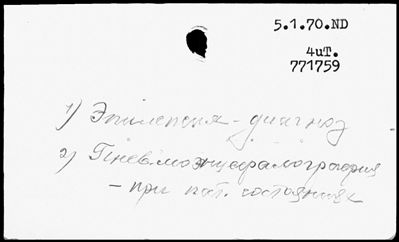 5.1.70.ND
4uT.
771759
1) Эпилепсия - диагноз
2) Пневмоэнцефалография
- при пат. состояниях